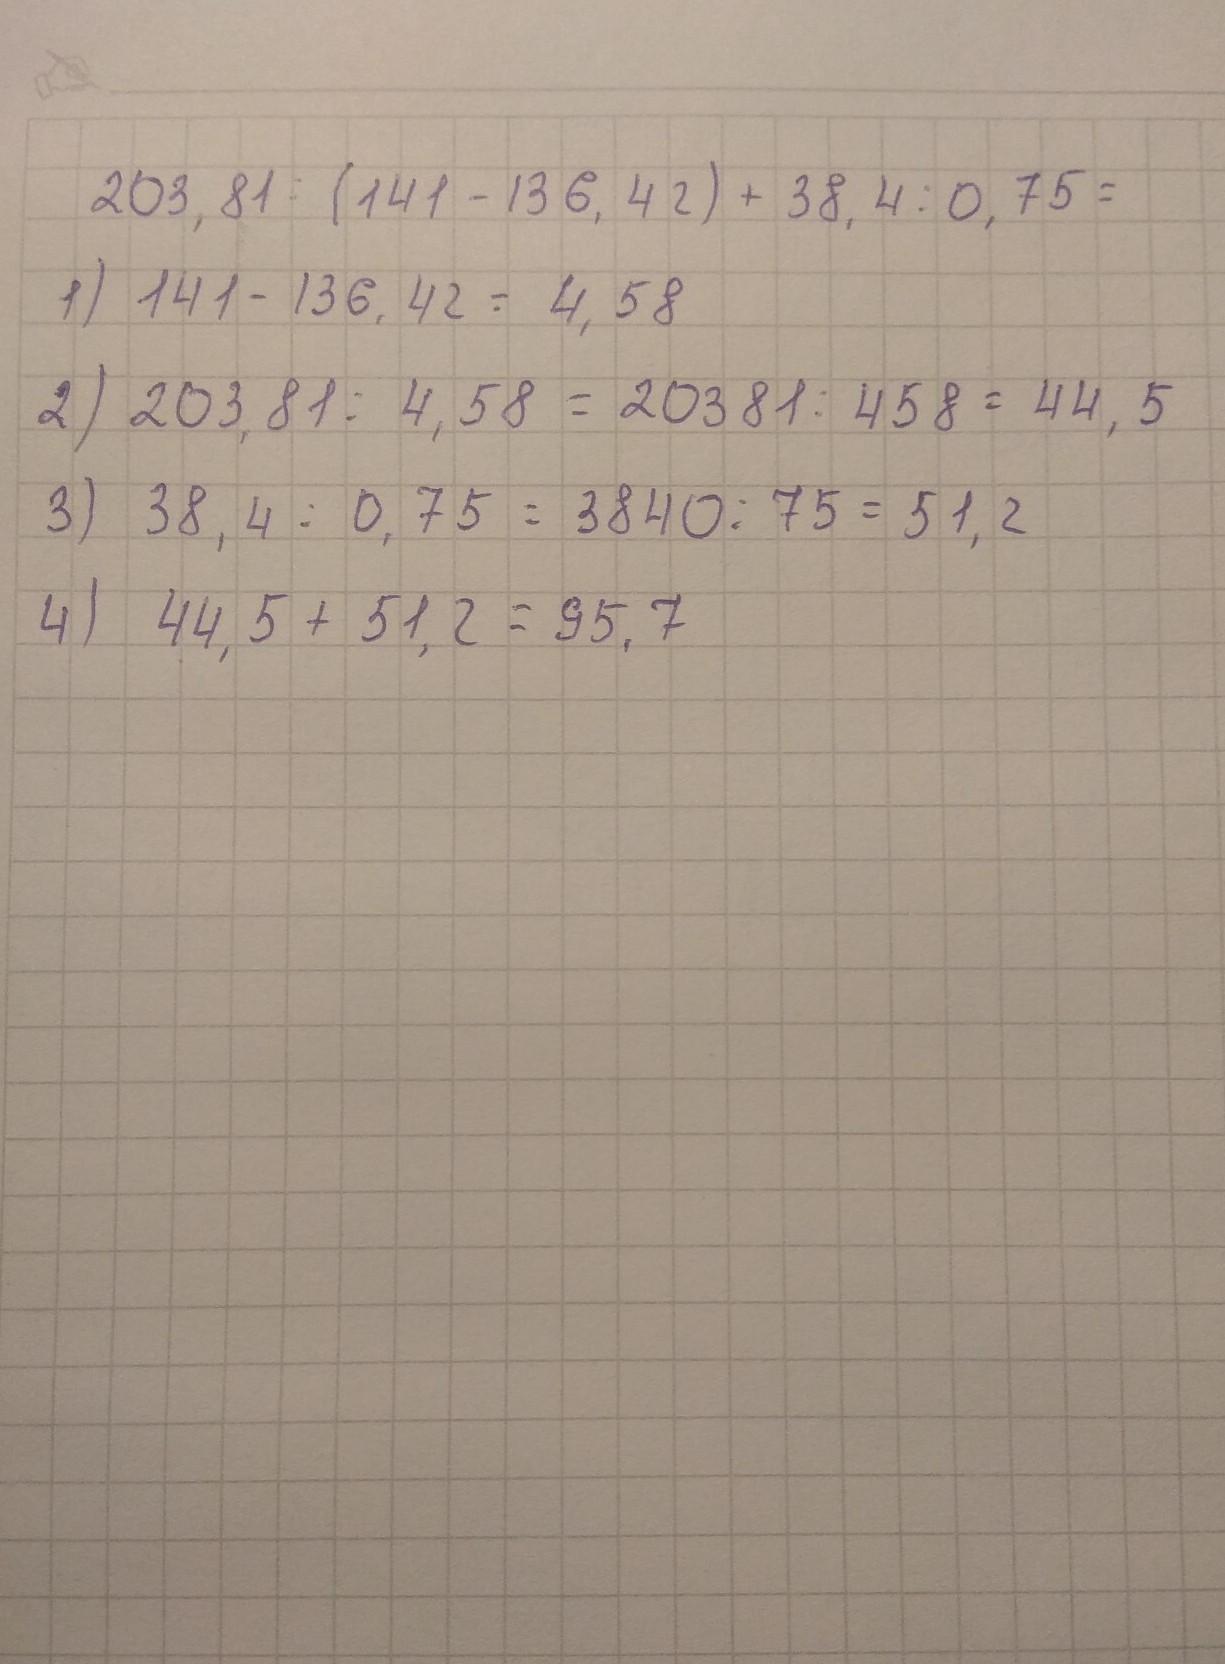 203,81 : (141 - 136,42) + 38,4 : 0,75 =
1) 141 - 136,42 = 4,58
2) 203,81 : 4,58 = 20381 : 458 = 44,5
3) 38,4 : 0,75 = 3840 : 75 = 51,2
4) 44,5 + 51,2 = 95,7